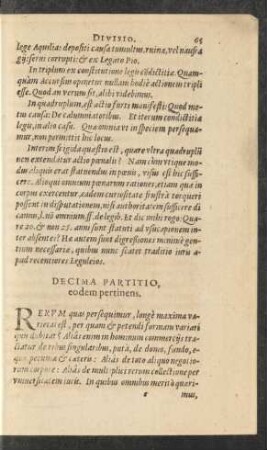 DIVISIO. 65
lege Aquilia: depositi causa tumultus, ruinæ, vel naufra-
gij: servi corrupti: & ex Legato Pio.
In triplum ex constitutione legis cōdictitia. Quam-
quàm Accursius putetur nullam hodiè actionem tripli
esse. Quod an verum sit, alibi videbimus.
In quadruplum, est actio furti manifesti: Quod me-
tus causa: De calumniatoribus. Et iterum condictitia
legis, in alio casu. Quæ omnia vt in speciem persequa-
mur, non permittit hic locus.
Interim frigida quæstio est, quare vltra quadruplū
non extenditur actio pœnalis? Nam cùm vtique mo-
dus aliquis erat statuendus in pœnis, visus est hic suffice-
re. Alioqui omnium pœnarum rationes, etiam quæ in
corpus exercentur, eadem curiositate frustrà torqueri
possent in disputationem, nisi authoritatem sufficere di-
camus, l. nō omnium. ff. de legib. Et dic mihi rogo: Qua-
re 20. & non 25. anni sunt statuti ad vsucapionem in-
ter absentes? Hæ autem sunt digressiones minimè gen-
tium necessariæ, quibus nunc scatet traditio iuris a-
pud recentiores Leguleios.
DECIMA PARTITIO,
eodem pertinens.
RERVM quas persequimur, longè maxima va-
rietas est, per quam & petendi formam variari
quis dubitat? Aliàs enim in hominum commercijs tra-
ctatur de rebus singularibus, putà, de domo, fundo, e-
quo, pecunia & cæteris: Aliàs de toto aliquo negotio-
rum corpore: Aliàs de multiplici rerum collectione per
vniuersitatem iuris. In quibus omnibus meritò quæri-
e mus,